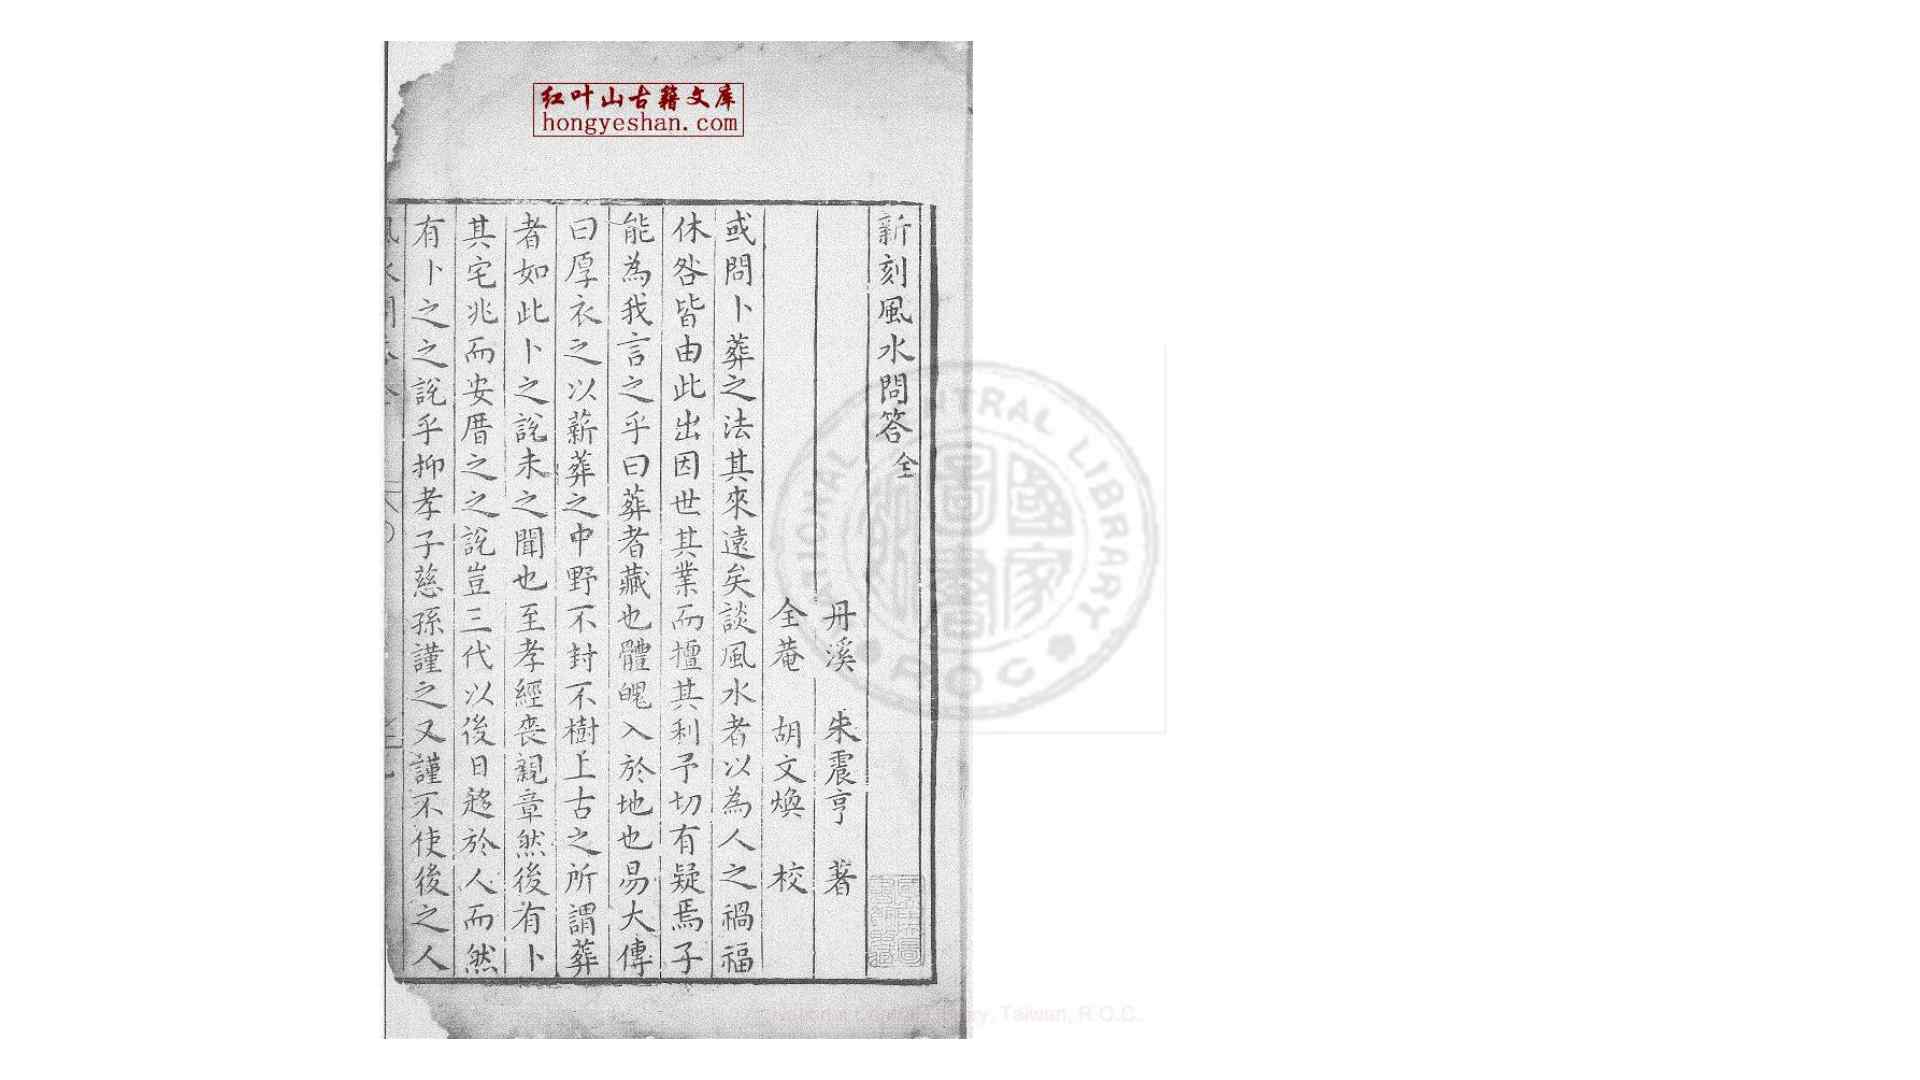 红叶山古籍文库
hongyeshan.com
新刻風水問答全
丹溪 朱震亨 著
全菴 胡文煥 校
或問卜葬之法其來遠矣談風水者以為人之禍福
休咎皆由此出因世其業而擅其利予切有疑焉子
能為我言之乎曰葬者藏也體魄入於地也易大傳
曰厚衣之以薪葬之中野不封不樹上古之所謂葬
者如此卜之說未之聞也至孝經喪親章然後有卜
其宅兆而安厝之之說豈三代以後日趍於人而然
有卜之之說乎抑孝子慈孫謹之又謹不使後之人
NATIONAL CENTRAL LIBRARY
R.O.C
國家圖書
National Central Library, Taiwan, R.O.C.